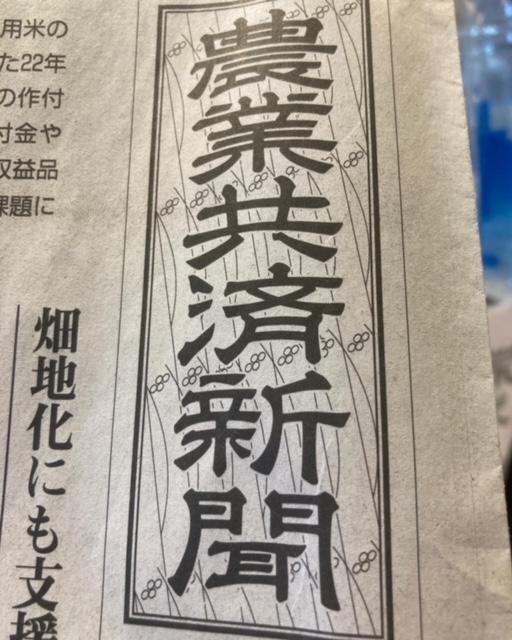 農業共済新聞
用米の
た22年
の作付
付金や
収益品
課題に
畑地化にも支援